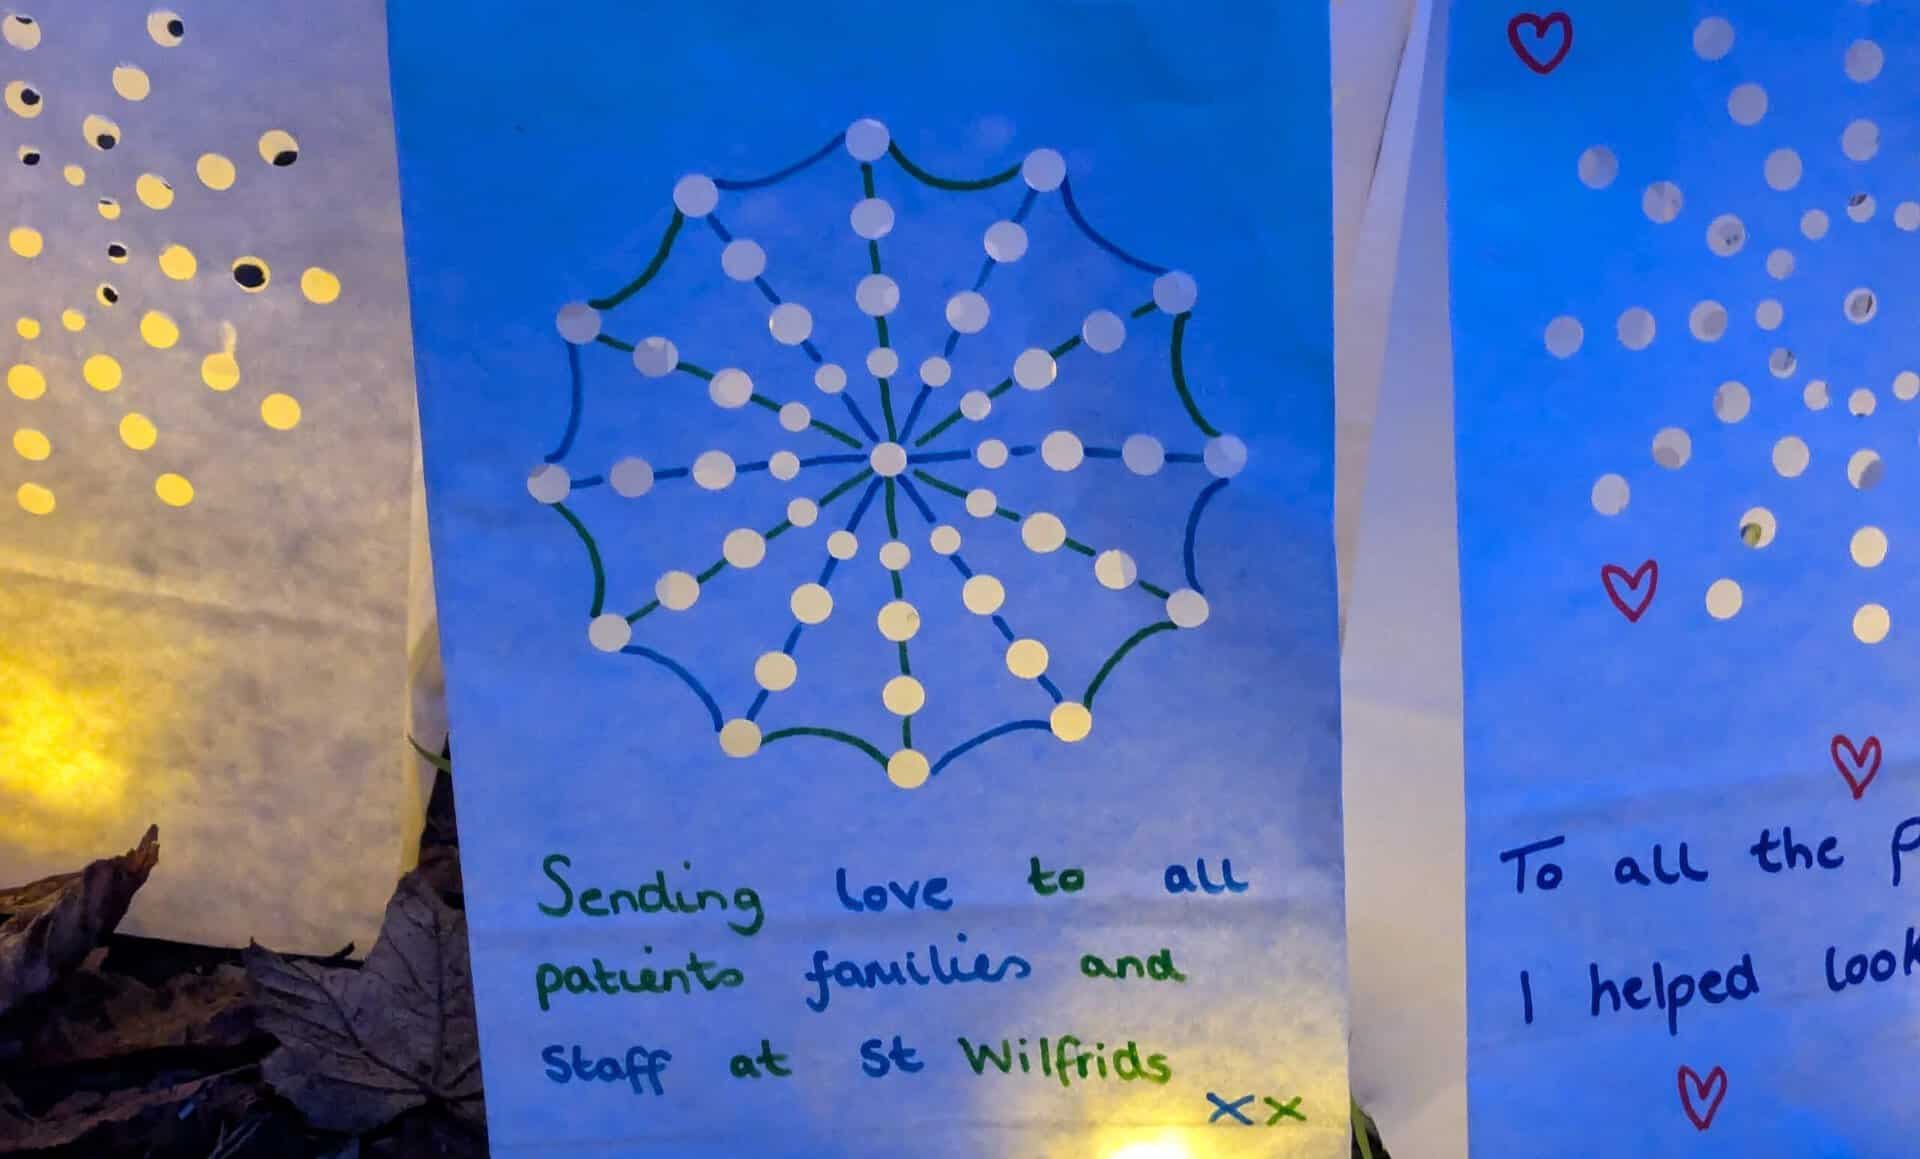 Sending love to all
patients families and
Staff at St Wilfrids
xx
To all the
I helped look